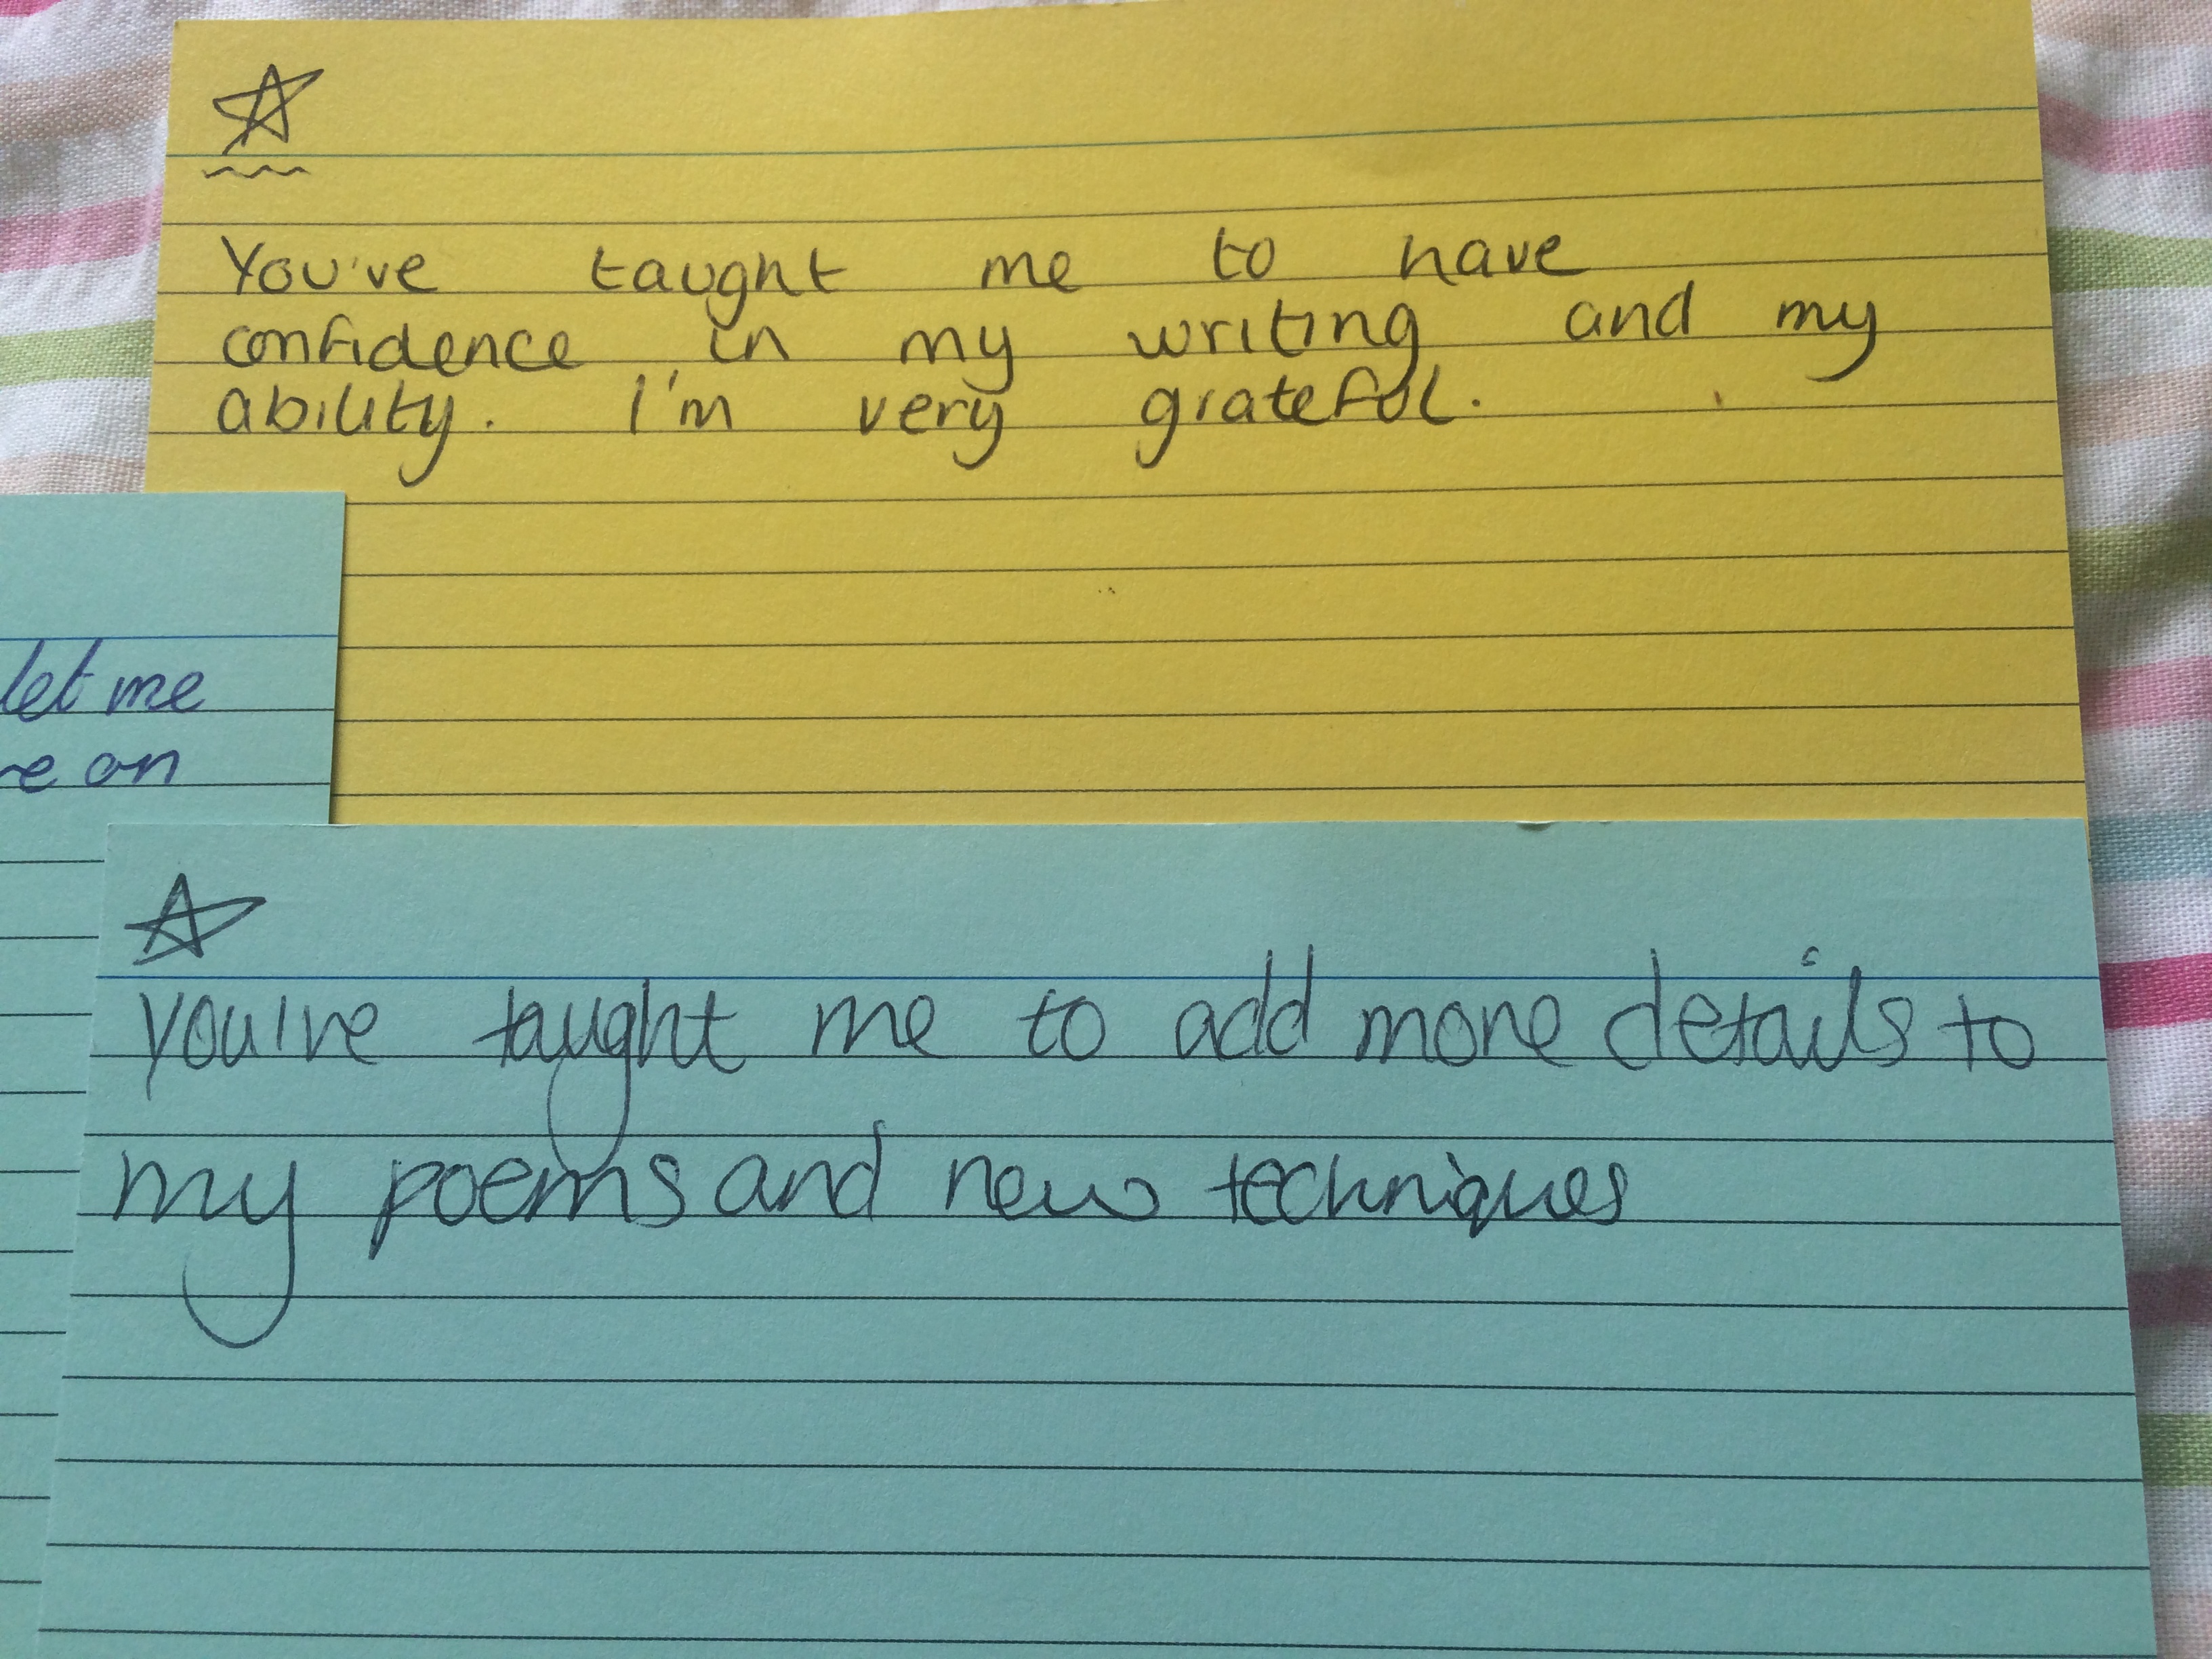 You've taught me to have
confidence in my writing and my
ability. I'm very grateful.
let me
on
you've taught me to add more details to
my poems and new techniques